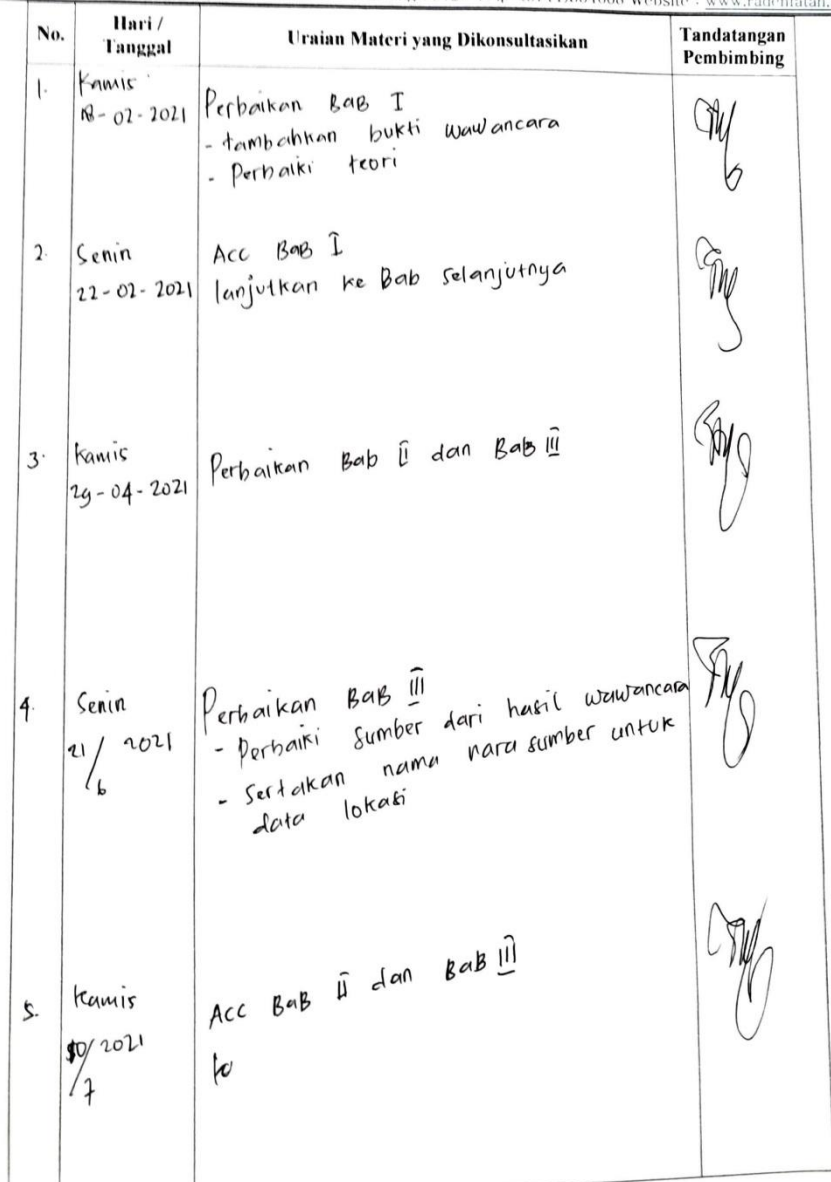 Website : www.radenfatah.
No. Hari / Tanggal Uraian Materi yang Dikonsultasikan Tandatangan Pembimbing
1. Kamis
18-02-2021 Perbaikan BAB I
- tambahkan bukti wawancara
- Perbaiki teori
2. Senin Acc BAB I
22-02-2021 lanjutkan ke Bab selanjutnya
3. Kamis Perbaikan Bab II dan Bab III
29-04-2021
4. Senin Perbaikan BAB III
21/6 2021 - Perbaiki sumber dari hasil wawancara
- Sertakan nama nara sumber untuk
data lokasi
5. Kamis Acc BAB II dan BAB III
/7 2021